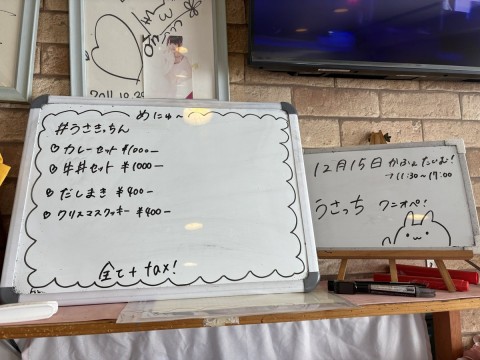 2011.10.29
めにゅ〜
#うさきっちん
♡カレーセット ¥1000ー
♡牛丼セット ¥1000ー
♡だしまき ¥400ー
♡クリスマスクッキー ¥400ー
全て+tax!
12月15日 かふぇたいむ!
→11:30〜17:00
うさっち ワンオペ!